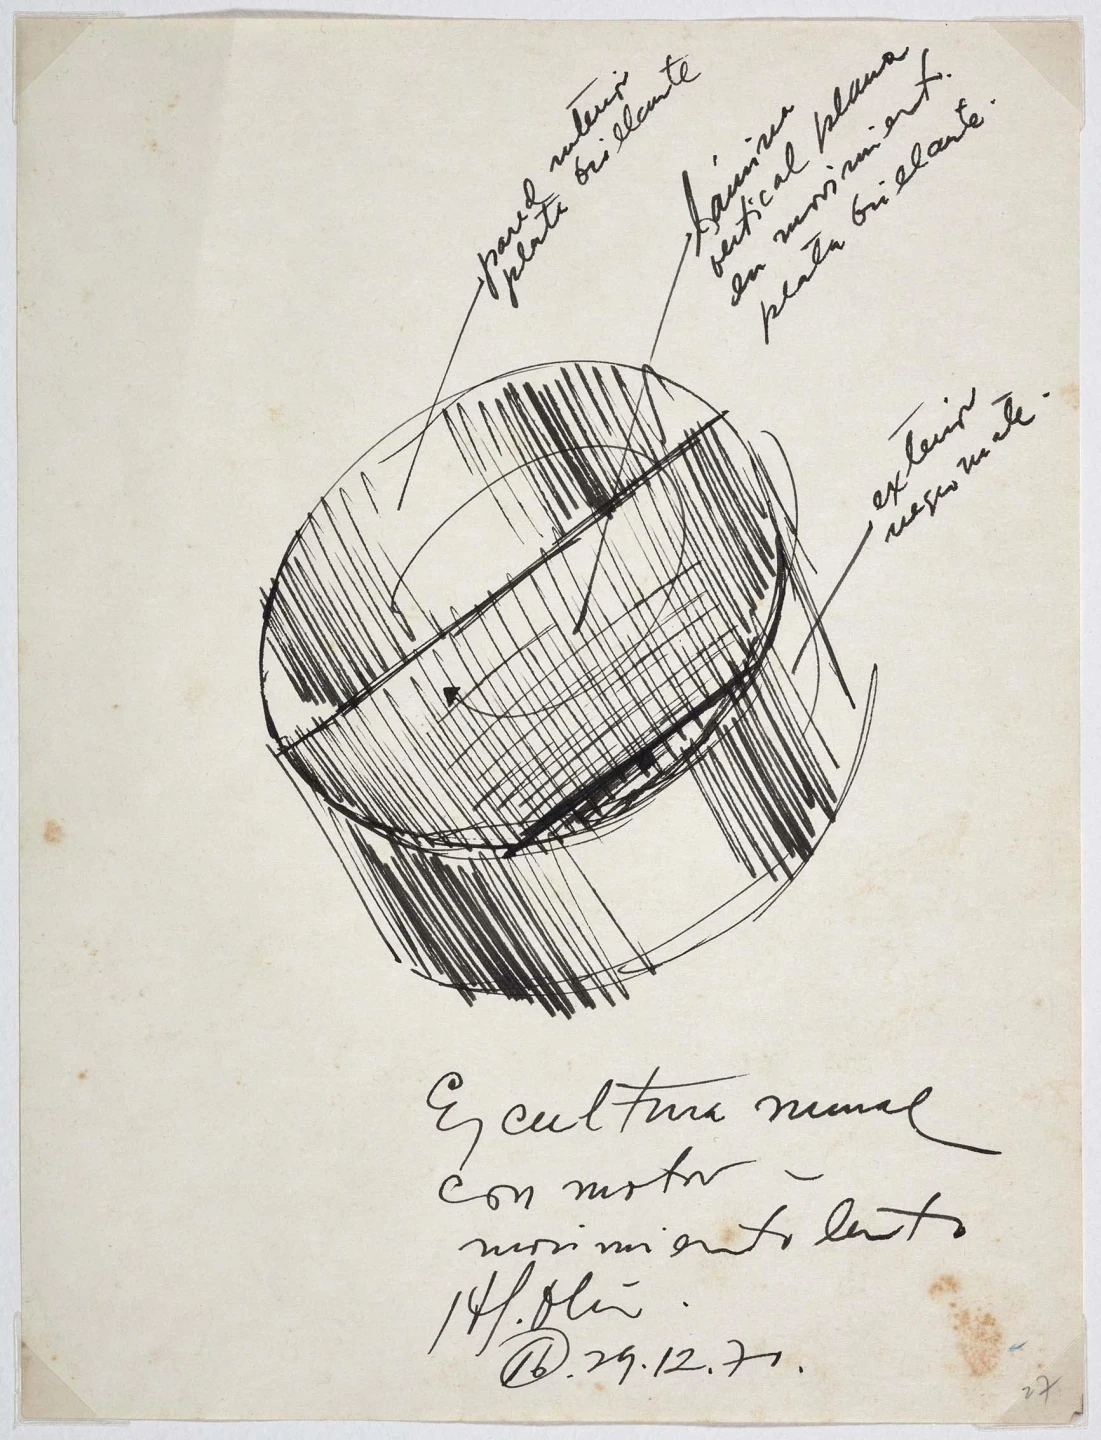 pared interior
plata brillante
Lámina
vertical plana
en movimient.
plata brillante.
exterior
negro mate.
Escultura mural
con motor –
movimiento lento
16. 29.12.71.
27